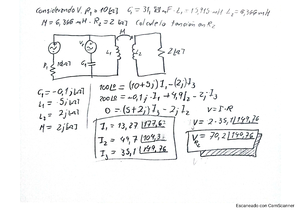 Considerando V. R₁ = 10[Ω] C₁ = 31,83 mF. L₁ = 15,915 mH L₂ = 6,366 mH
M = 6,366 mH. R₂ = 2[Ω] Calcular la tensión en R₂
M
V₁
V₂
L₁
L₂
C₁
2[Ω]
R₁
10[Ω]
C₁ = -0,1j[Ω]
L₁ = 5j[Ω]
L₂ = 2j[Ω]
M = 2j[Ω]
100∠0 = (10+5j)I₁-(2j)I₃
200∠0 = -0,1j·I₁+4,9I₂-2jI₃
0 = (5+2j)I₃-2jI₂
I₁ = 13,27∠177,6
I₂ = 49,7∠104,3
I₃ = 35,1∠149,76
V = I·R
V = 2·35,1∠149,76
V = 70,2∠149,76
Escaneado con CamScanner